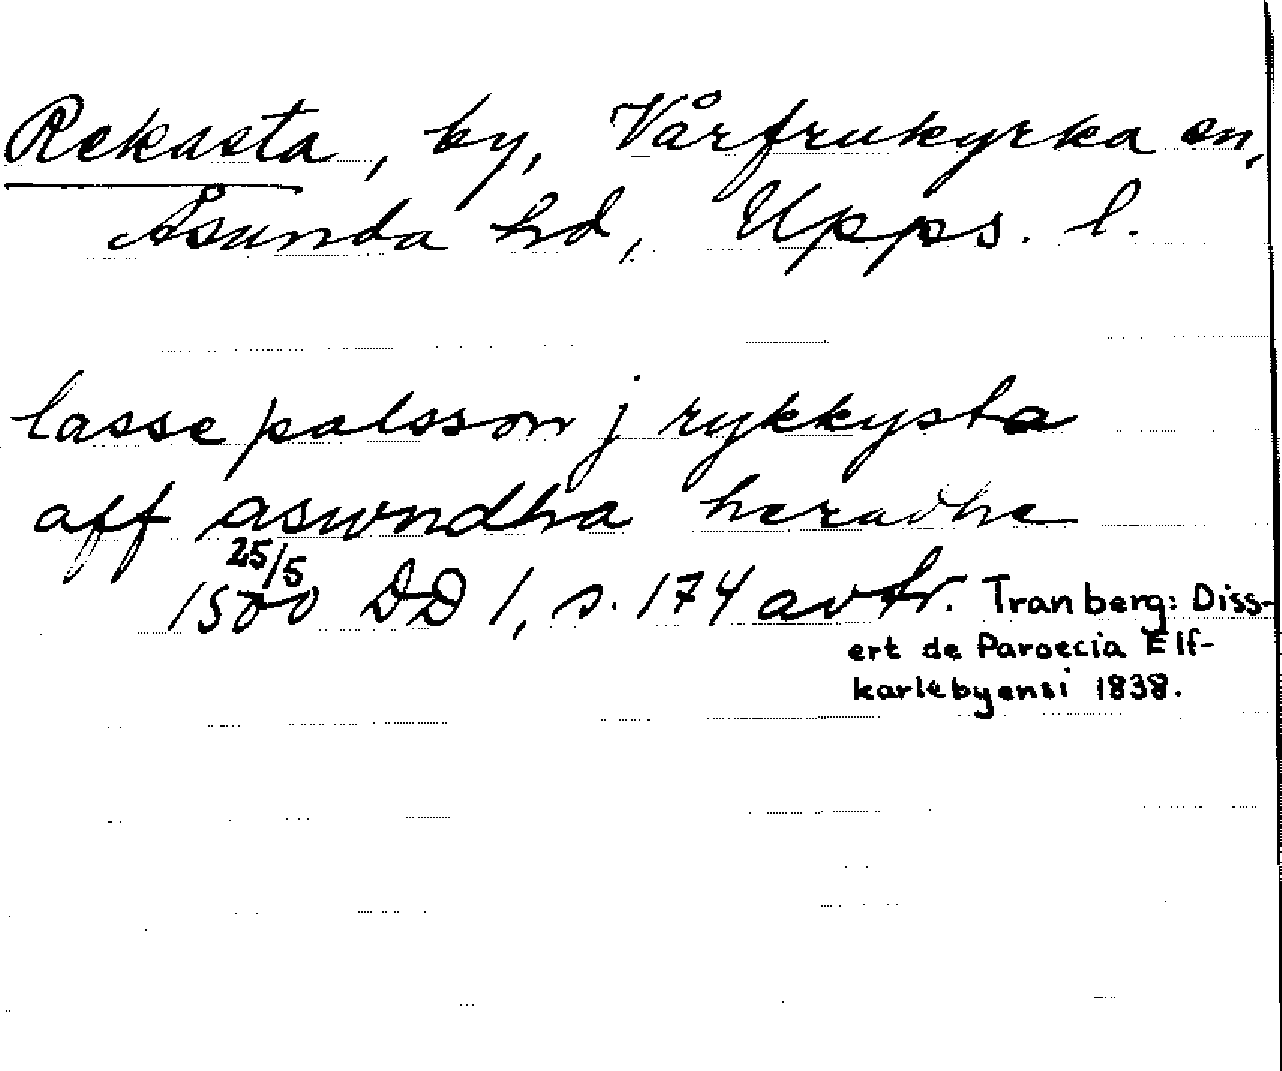 Rekasta, by, Vårfrukyrka sn,
Åsunda hd, Upps. l.
lasse palsson j rykkysta
aff aswndha heradhe
25/5
1500 DD 1, s. 174 avtr. Tranberg: Diss-
ert de Paroecia Elf-
karlebyensi 1838.